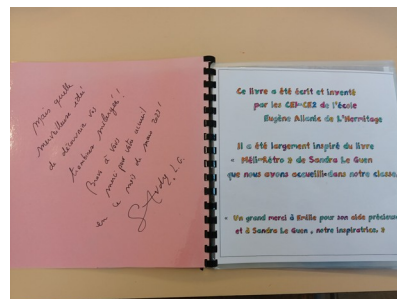 Mais quelle
merveilleuse idée
de découvrir vos
tombeaux mélangés!!
Bravo à vous
merci pour votre accueil
en ce mois de mars 2023!
Sandy L.G.
Ce livre a été écrit et inventé
par les CE1-CE2 de l'école
Eugène Allanic de L'Hermitage
Il a été largement inspiré du livre
« Méli-Rétro » de Sandra Le Guen
que nous avons accueilli dans notre classe.
« Un grand merci à Emilie pour son aide précieuse
et à Sandra Le Guen , notre inspiratrice. »